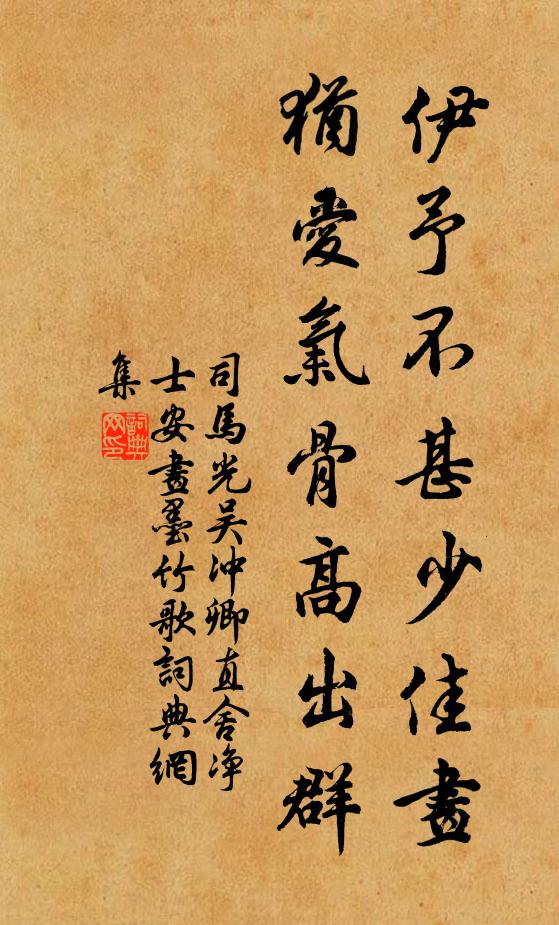 伊予不甚少佳畫
猶愛氣骨高出群
司馬光吴沖卿直舍净
士安畫墨竹歌詞典網
集
詞典
网印